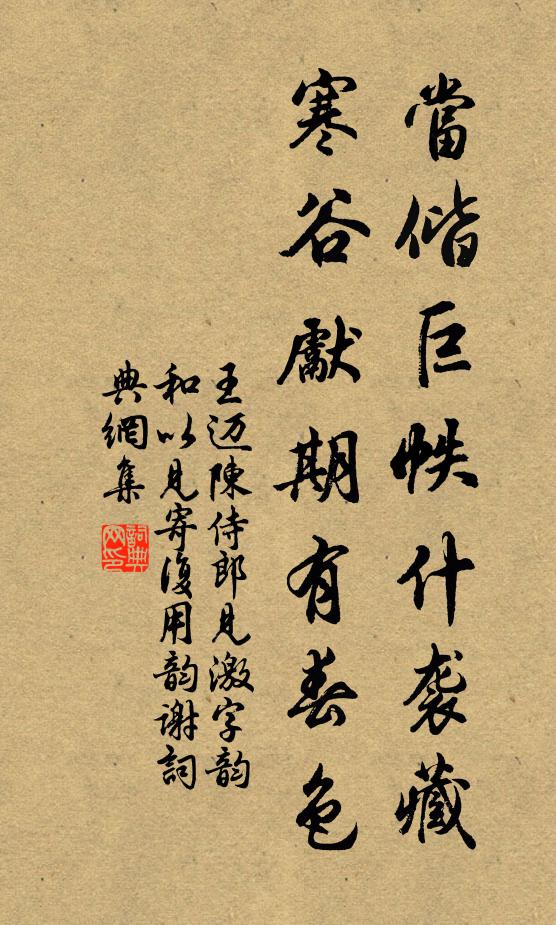 當偕巨帙什袭藏
寒谷獻期有春色
王迈陳侍郎見激字韵
和以見寄復用韵謝詞
典網集
詞典
网印